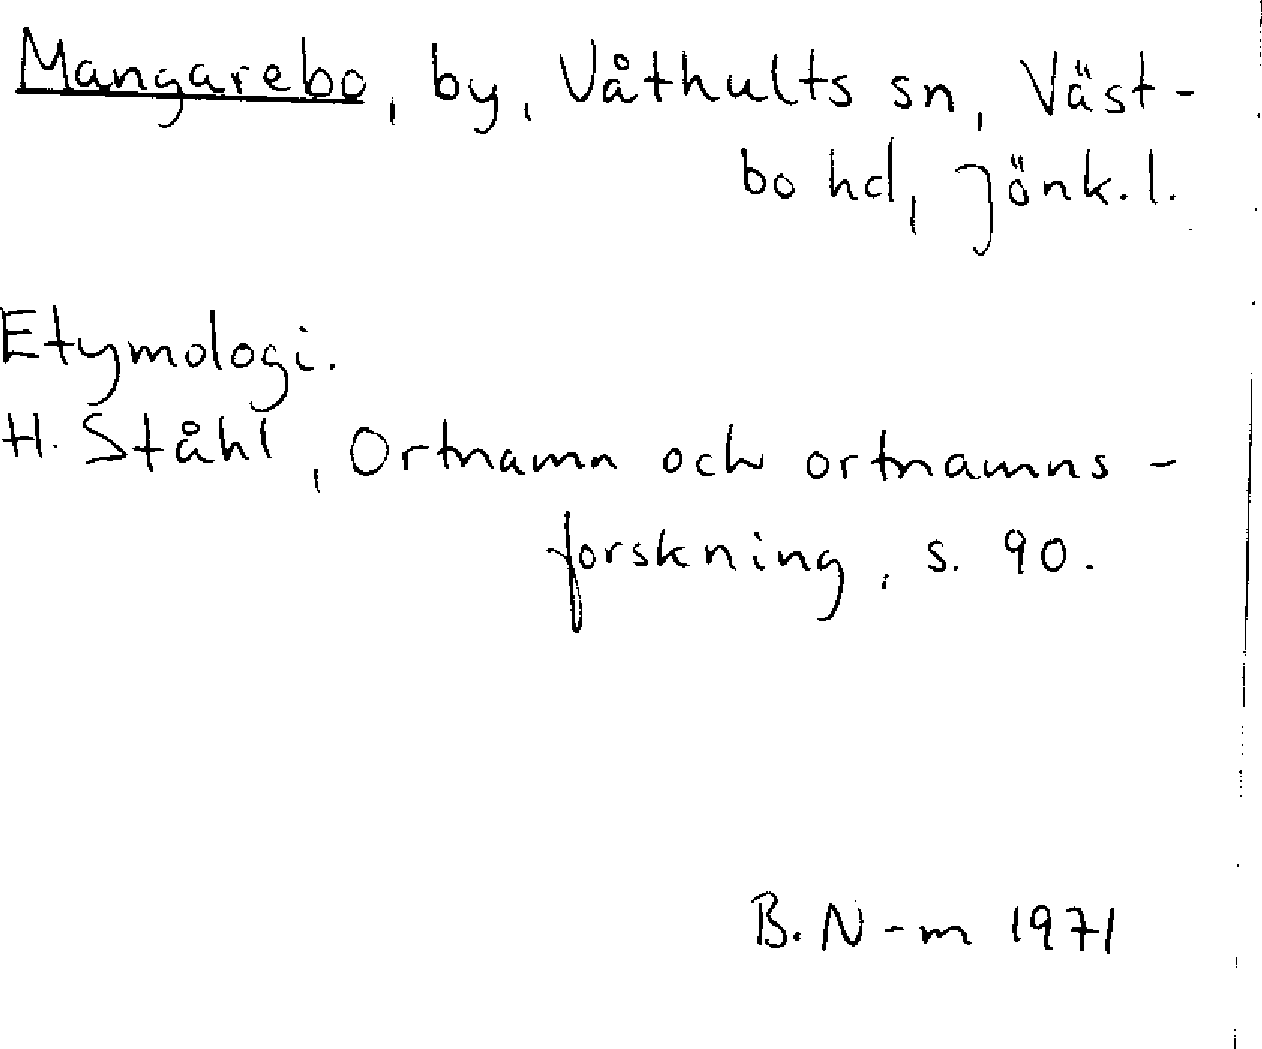 Mangarebo, by, Våthults sn, Väst-
bo hd, Jönk. l.
Etymologi.
H. Ståhl, Ortnamn och ortnamns-
forskning, s. 90.
B. N-m 1971